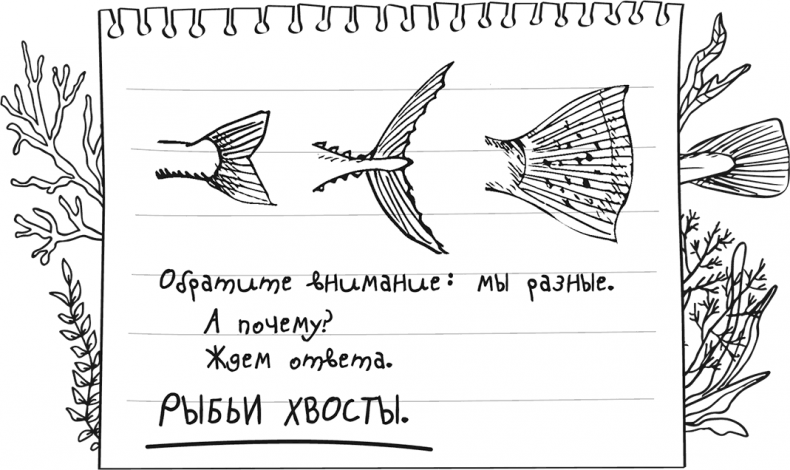 Обратите внимание: мы разные.
А почему?
Ждем ответа.
РЫБЬИ ХВОСТЫ.